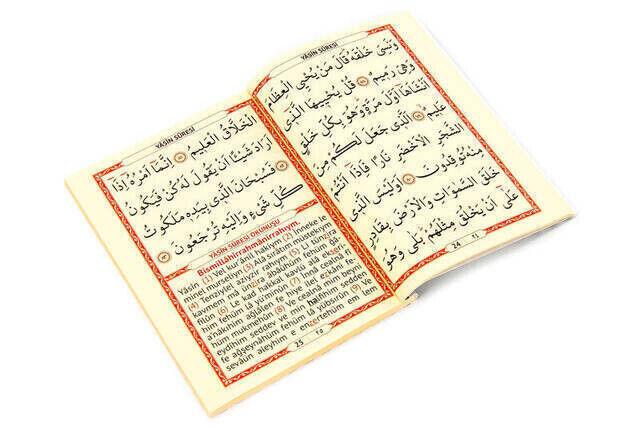 YÂSİN SÛRESİ
وَنَسِيَ خَلْقَهُ قَالَ مَنْ يُحْيِي الْعِظَامَ
وَهِيَ رَمِيمٌ ﴿٧٨﴾ قُلْ يُحْيِيهَا الَّذِٓي
اَنْشَاَهَٓا اَوَّلَ مَرَّةٍ وَهُوَ بِكُلِّ خَلْقٍ
عَلِيمٌ ﴿٧٩﴾ اَلَّذِي جَعَلَ لَكُمْ مِنَ
الشَّجَرِ الْاَخْضَرِ نَارًا فَاِذَٓا اَنْتُمْ
مِنْهُ تُوقِدُونَ ﴿٨٠﴾ اَوَلَيْسَ الَّذِي
خَلَقَ السَّمٰوَاتِ وَالْاَرْضَ بِقَادِرٍ
عَلٰٓى اَنْ يَخْلُقَ مِثْلَهُمْ بَلٰى وَهُوَ
24 ٢٤
YÂSİN SÛRESİ
الْخَلَّاقُ الْعَلِيمُ ﴿٨١﴾ اِنَّمَٓا اَمْرُهُٓ اِذَٓا
اَرَادَ شَيْـًٔا اَنْ يَقُولَ لَهُ كُنْ فَيَكُونُ
﴿٨٢﴾ فَسُبْحَانَ الَّذِي بِيَدِهِ مَلَكُوتُ
كُلِّ شَيْءٍ وَاِلَيْهِ تُرْجَعُونَ ﴿٨٣﴾
YÂSİN SÛRESİ OKUNUŞU
Bismillâhirrahmânirrahıym.
Yâsîn (1) Vel kur'ânil hakiym. (2) İnneke le
minel murseliyn (3) Alâ sırâtım müstekıym
(4) Tenziylel aziyzir rahıym (5) Li tünzira
kavmem mâ ünzira âbâühüm fehüm ğâ
filûn (6) Le kad hakkal kavlü alâ ekseri
him fehüm lâ yü'minûn (7) İnnâ cealnâ fî
a'nâkıhim ağlâlen fe hiye ilel ezkâni fe-
hüm mükmehûn (8) Ve cealnâ mim beyni
eydîhim seddev ve min halfihim sedden
fe ağşeynâhüm fehüm lâ yübsırûn (9) Ve
sevâün aleyhim e enzertehüm em lem
25 ٢٥